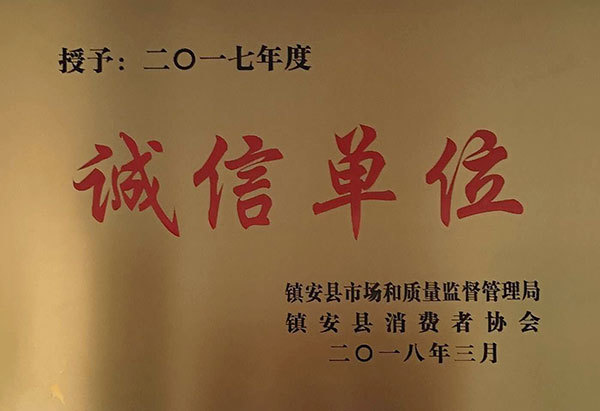 授予：二〇一七年度
诚信单位
镇安县市场和质量监督管理局
镇安县消费者协会
二〇一八年三月